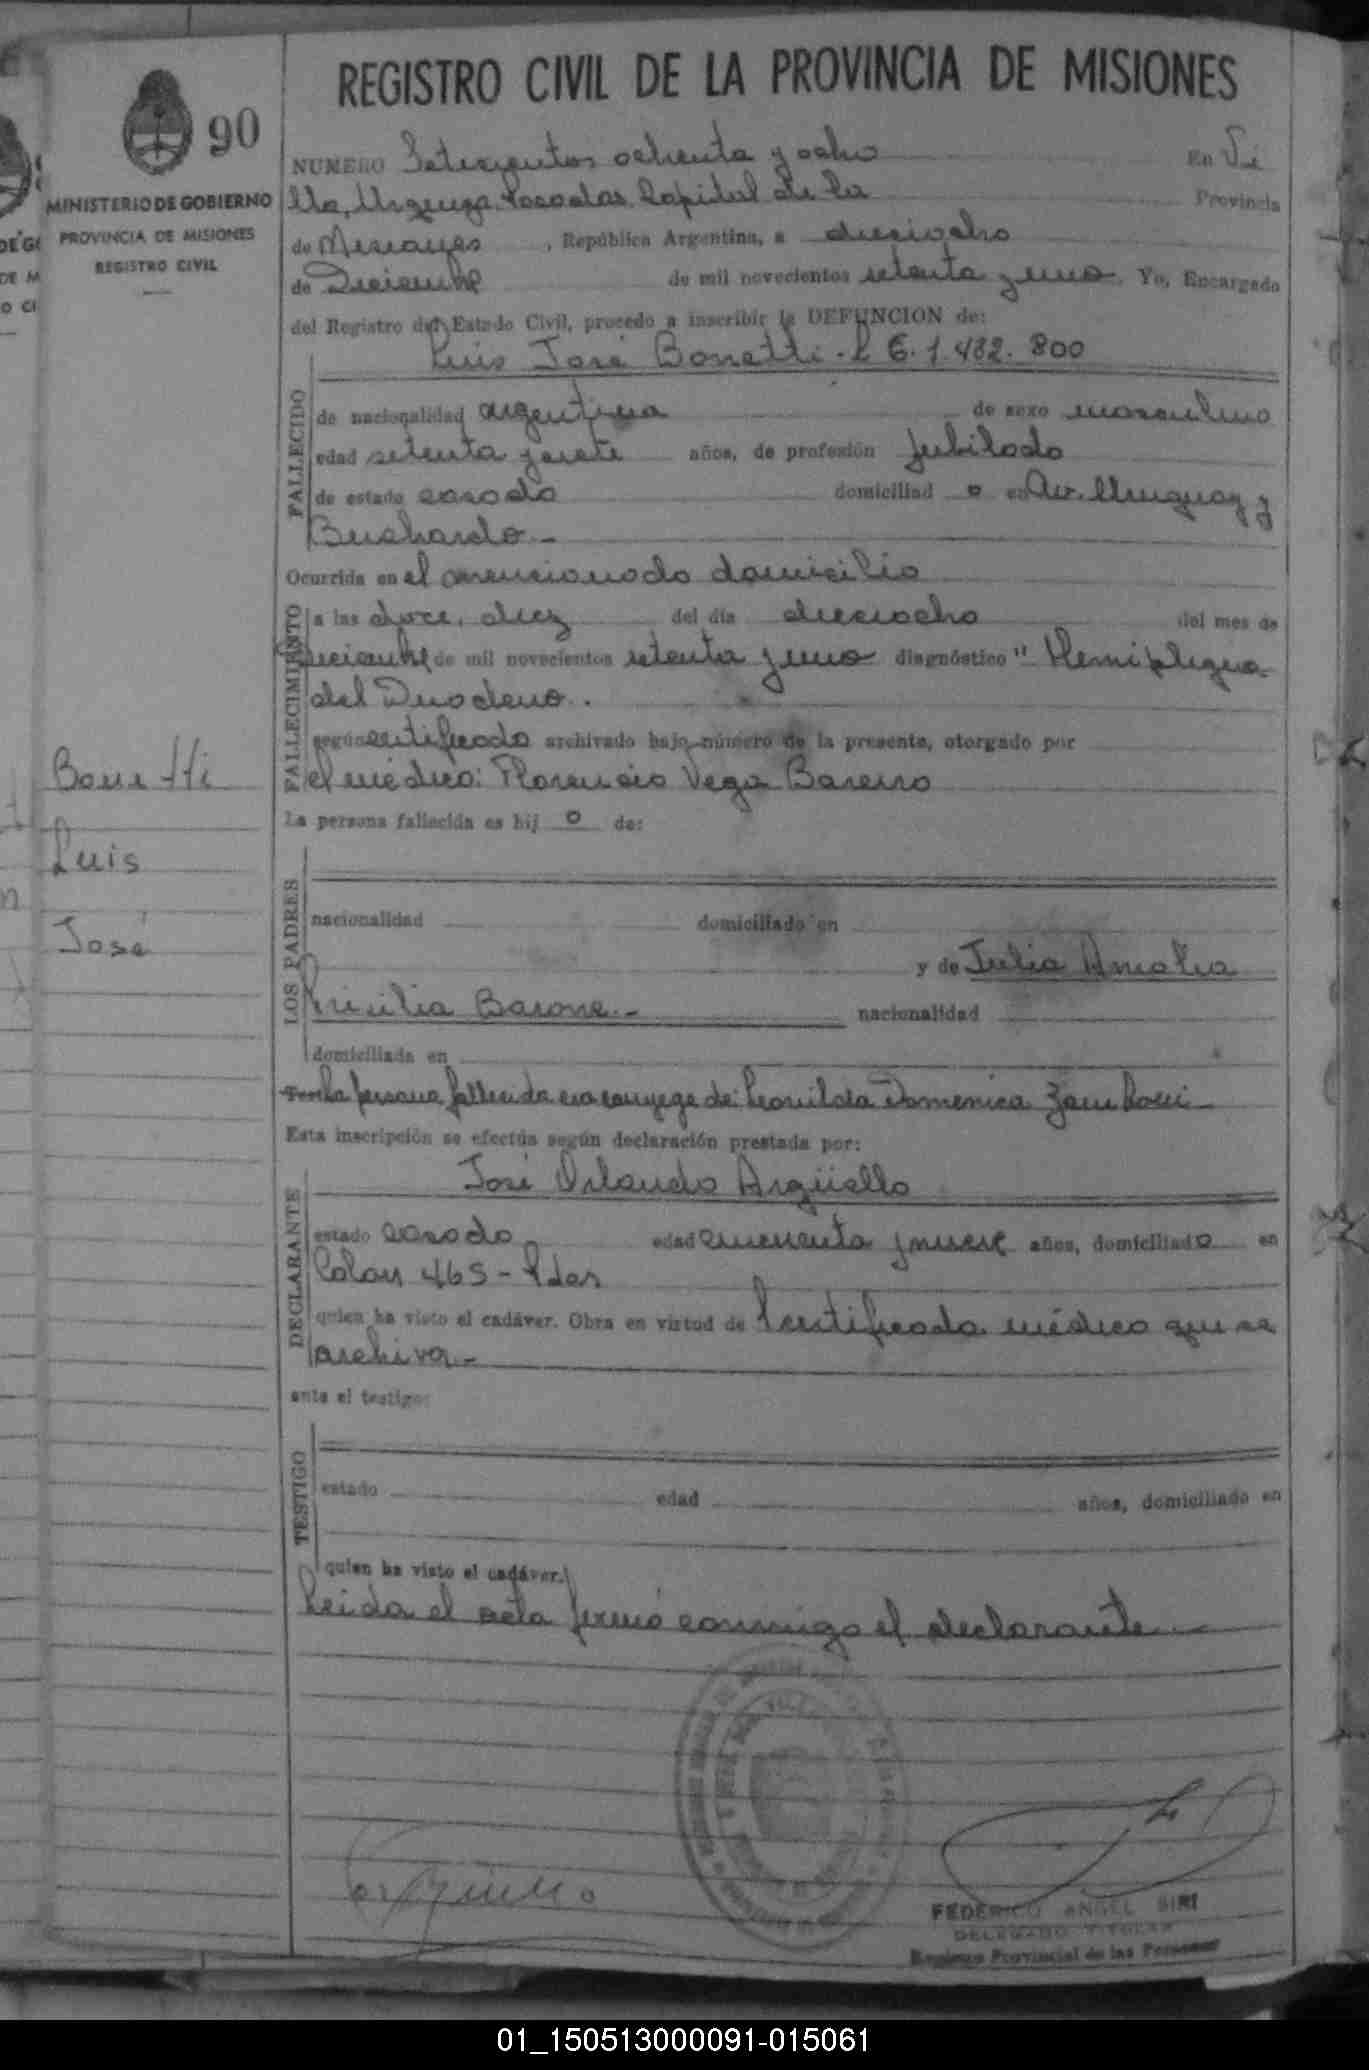 REGISTRO CIVIL DE LA PROVINCIA DE MISIONES
90
MINISTERIO DE GOBIERNO
PROVINCIA DE MISIONES
REGISTRO CIVIL
NUMERO Setecientos ochenta y ocho En Vi
lla Urquiza, Posadas, Capital de la Provincia
de Misiones, República Argentina, a dieciocho
de Diciembre de mil novecientos setenta y uno. Yo, Encargado
del Registro del Estado Civil, procedo a inscribir la DEFUNCION de:
Luis José Bonetti. L E. 1.432.800
FALLECIDO
de nacionalidad argentina de sexo masculino
edad setenta y siete años, de profesión Jubilado
de estado casado domiciliad o en Av. Uruguay y
Buchardo.-
Ocurrida en el mencionado domicilio
FALLECIMIENTO
a las doce, diez del día dieciocho del mes de
Diciembre de mil novecientos setenta y uno diagnóstico "
del Duodeno.
según certificado archivado bajo número de la presente, otorgado por
el médico: Florencio Vega Bareiro
Bonetti
Luis
José
La persona fallecida es hij o de:
LOS PADRES
nacionalidad domiciliado en
y de Julia Amalia
Barone.- nacionalidad
domiciliada en
La persona fallecida era conyuge de: Leonilda Domenica
Esta inscripción se efectúa según declaración prestada por:
José Orlando Argüello
DECLARANTE
estado casado edad cincuenta y nueve años, domiciliado en
Colon 465 - Pdas
quien ha visto el cadáver. Obra en virtud de Certificado médico que se
archiva.-
ante el testigo:
TESTIGO
estado edad años, domiciliado en
quien ha visto el cadáver.
Leida el acta firmó conmigo el declarante
FEDERICO ANGEL SIRI
DELEGADO TITULAR
Registro Provincial de las Personas
01_150513000091-015061